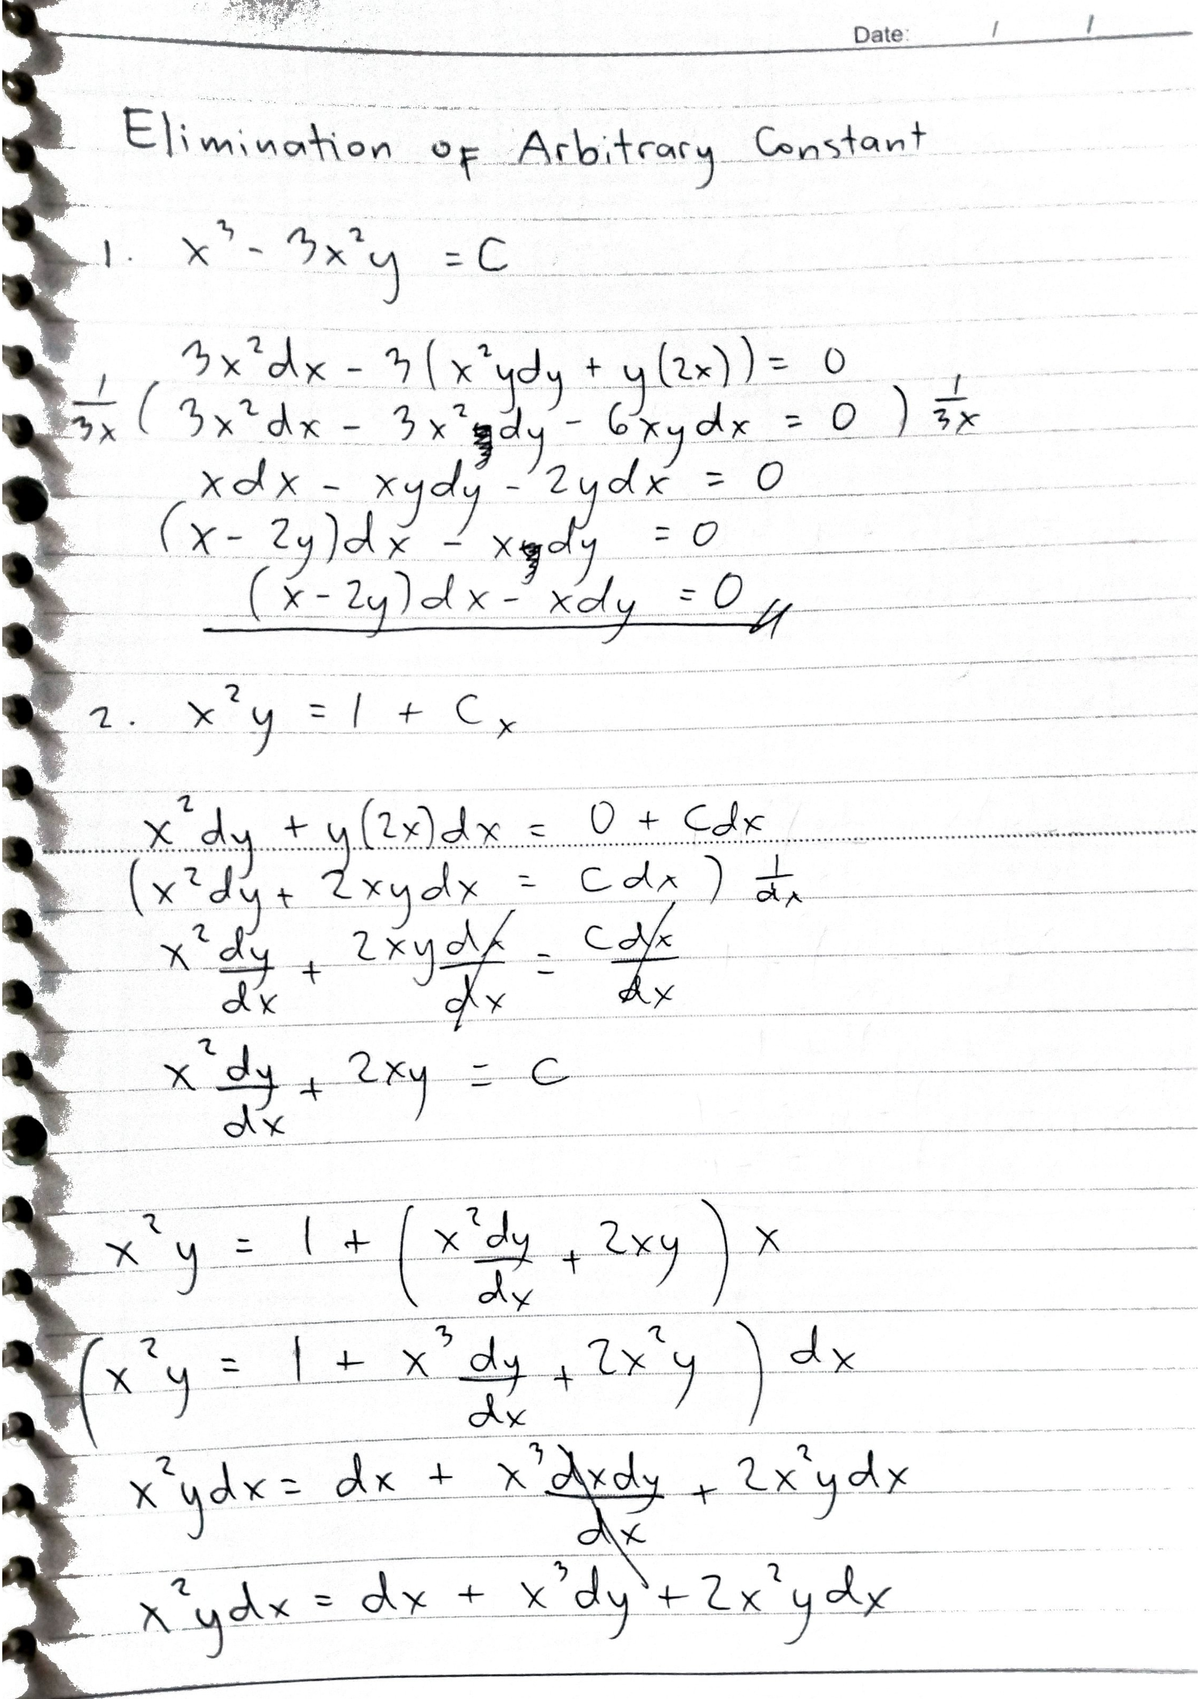 Date: / /
Elimination of Arbitrary Constant
1. x³ - 3x²y = C
3x²dx - 3(x²ydy + y(2x)) = 0
1/3x ( 3x²dx - 3x²dy - 6xydx = 0 ) 1/3x
xdx - xydy - 2ydx = 0
(x - 2y)dx - xdy = 0
(x - 2y)dx - xdy = 0
2. x²y = 1 + Cx
x²dy + y(2x)dx = 0 + Cdx
(x²dy + 2xydx = Cdx) 1/dx
x² dy/dx + 2xy dx/dx = C dx/dx
x² dy/dx + 2xy = C
x²y = 1 + (x² dy/dx + 2xy) x
(x²y = 1 + x³ dy/dx + 2x²y) dx
x²ydx = dx + x³ dxdy/dx + 2x²ydx
x²ydx = dx + x³dy + 2x²ydx